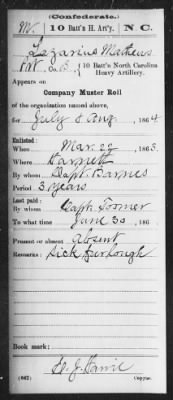 (Confederate.)
M. 10 Batt'n H. Art'y. N. C.
Lazarius Mathews
Pvt, Co. B, 10 Batt'n North Carolina Heavy Artillery.
Appears on
Company Muster Roll
of the organization named above,
for July & Aug, 1864
Enlisted:
When Mar. 29, 1863.
Where Harnett
By whom Capt. Barnes
Period 3 years
Last paid:
By whom Capt. Toomer
To what time June 30, 186
Present or absent Absent
Remarks: Sick furlough
Book mark:
(642) Copyist.